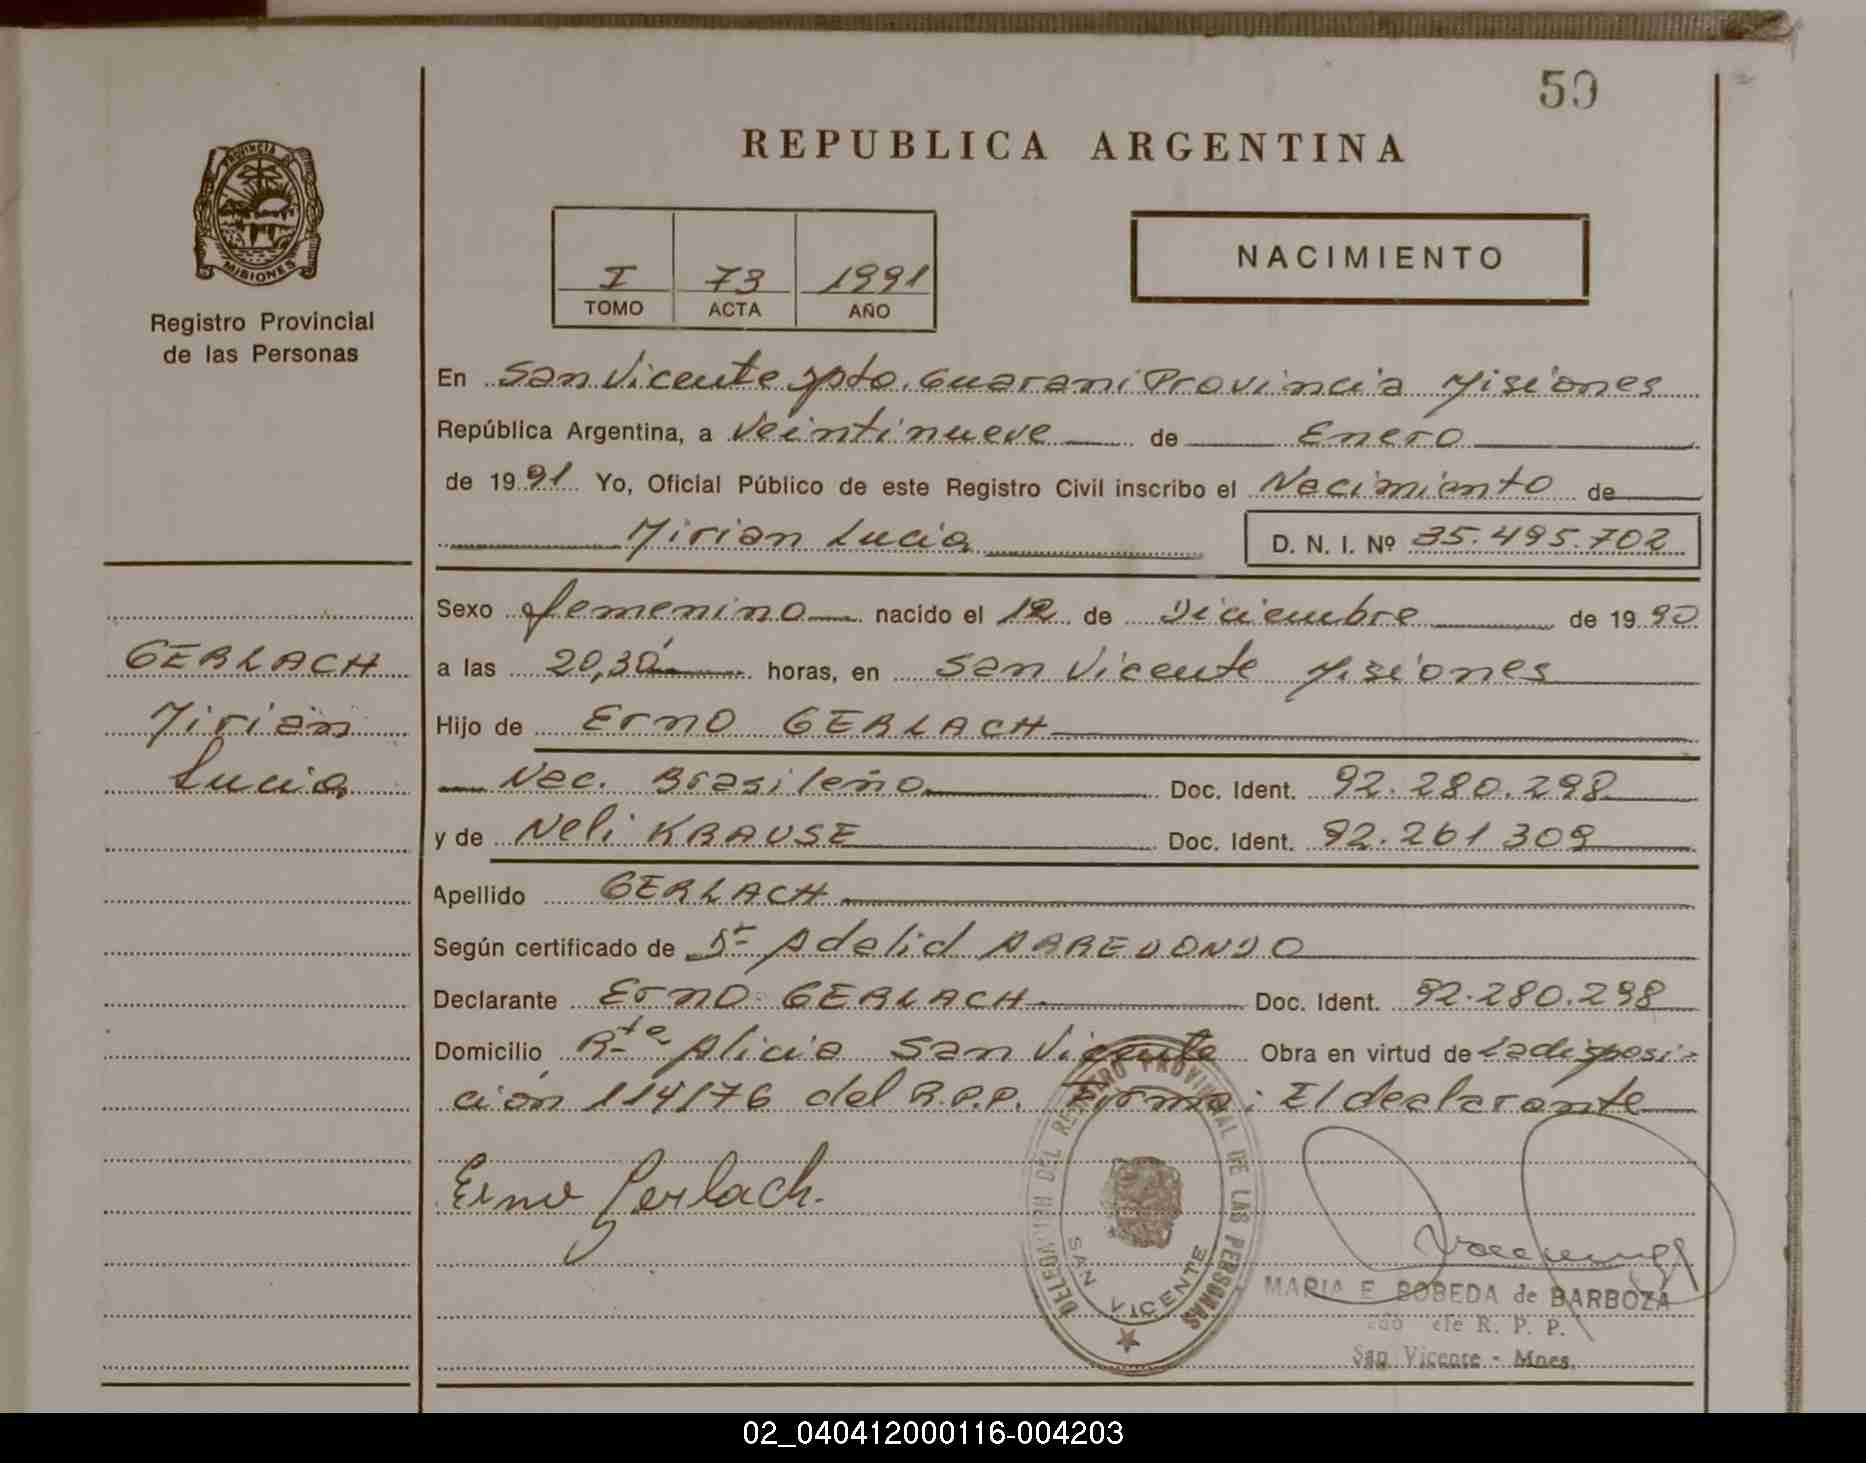 50
REPUBLICA ARGENTINA
PROVINCIA DE
MISIONES
Registro Provincial
de las Personas
I 73 1991
TOMO ACTA AÑO
NACIMIENTO
En San Vicente Dpto. Guarani Provincia Misiones
República Argentina, a Veintinueve de Enero
de 1991 Yo, Oficial Público de este Registro Civil inscribo el Nacimiento de
Mirian Lucia D. N. I. Nº 35.495.702
Sexo femenino nacido el 12 de Diciembre de 1990
GERLACH
Mirian
Lucia
a las 20,30 horas, en San Vicente Misiones
Hijo de Erno GERLACH
Nac. Brasileño Doc. Ident. 92.280.298
y de Neli KRAUSE Doc. Ident. 92.261 309
Apellido GERLACH
Según certificado de Dr Adelid ARREDONDO
Declarante Erno GERLACH Doc. Ident. 92.280.298
Domicilio Rta Alicia San Vicente Obra en virtud de la disposi-
ción 114/76 del R.P.P. Firma: El declarante
Erno Gerlach.
DELEGACION DEL REGISTRO PROVINCIAL DE LAS PERSONAS
SAN VICENTE
MARIA E BOBEDA de BARBOZA
R. P. P.
San Vicente - Mnes.
02_040412000116-004203